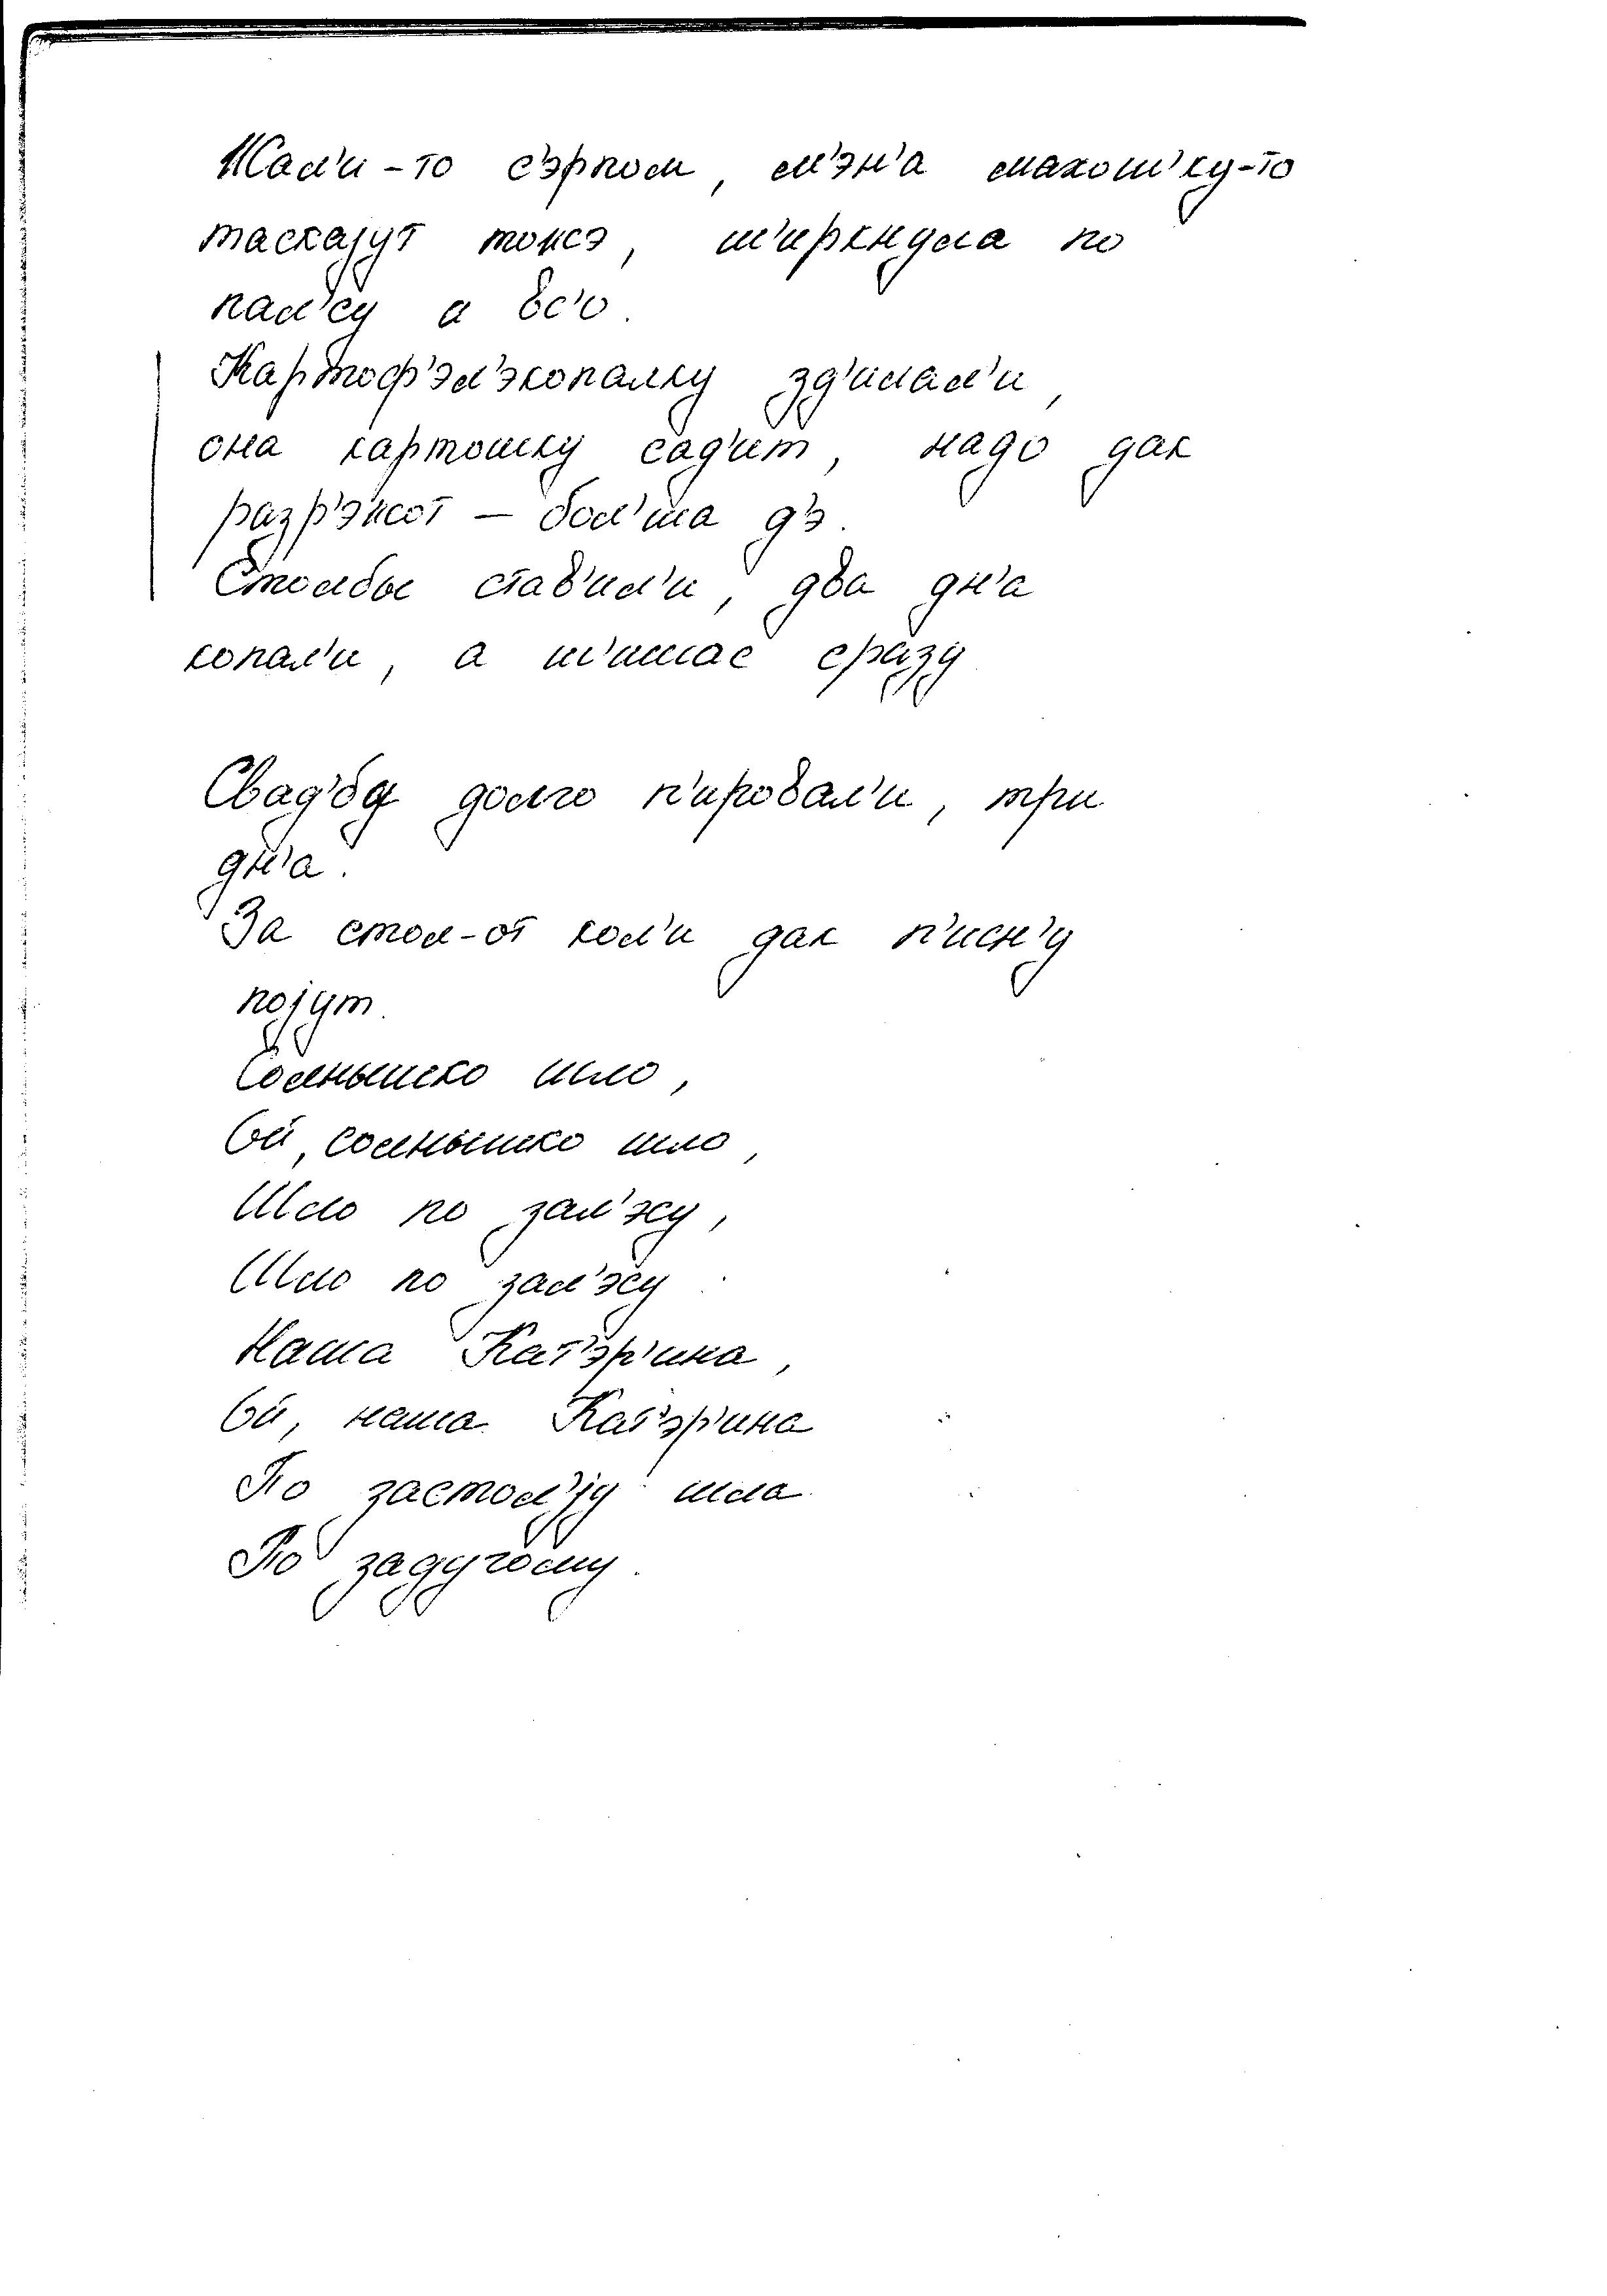 Жал'и-то с'эрпом, м'эн'а махот'ку-то
таскајут тожэ, т'иркнула по
пал'су и вс'о.
Картоф'эл'экопалку зд'илал'и,
она картошку сад'ит, надо дак
разр'эжот – бол'ша дэ.
Столбы став'ил'и, два дн'а
копал'и, а т'ишас сразу
Свад'бу долго п'ировал'и, три
дн'а.
За стол-от кол'и дак п'исн'у
појут.
Солнышко шло,
Ой, солнышко шло,
Шло по зал'эсу,
Шло по зал'эсу
Наша Кат'эр'ина,
Ой, наша Кат'эр'ина
По застол'ју шла
По задубому.